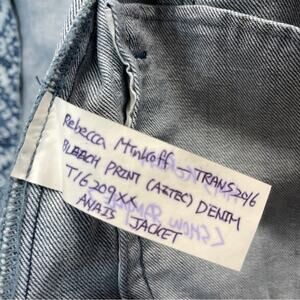 Rebecca Minkoff TRANS2016
BLEECH PRINT (AZTEC) DENIM
T16209XX
ANAIS JACKET